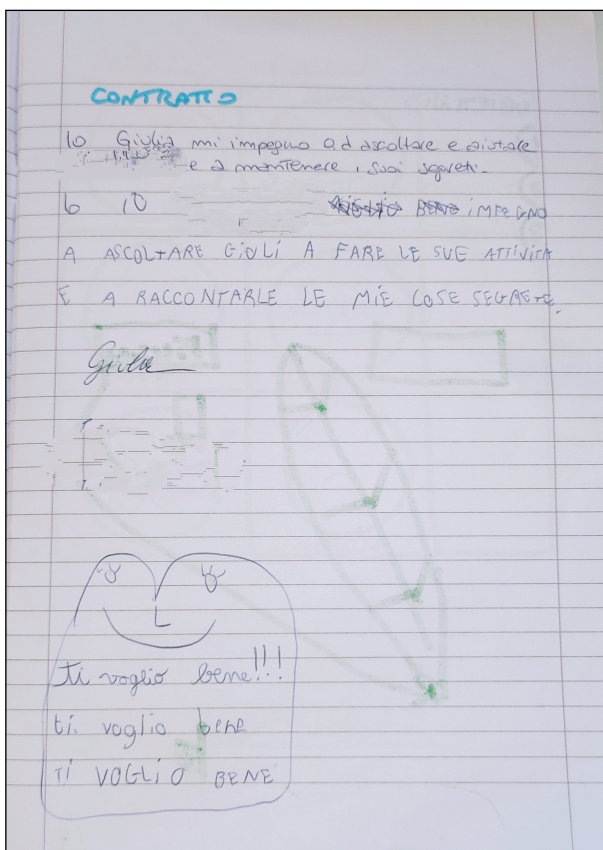 CONTRATTO
Io Giulia mi impegno ad ascoltare e aiutare
e a mantenere i suoi segreti.
IO IMPEGNO
A ASCOLTARE GIULI A FARE LE SUE ATTIVITA
E A RACCONTARLE LE MIE COSE SEGRETE.
Giulia
ti voglio bene!!!
ti voglio bene
TI VOGLIO BENE